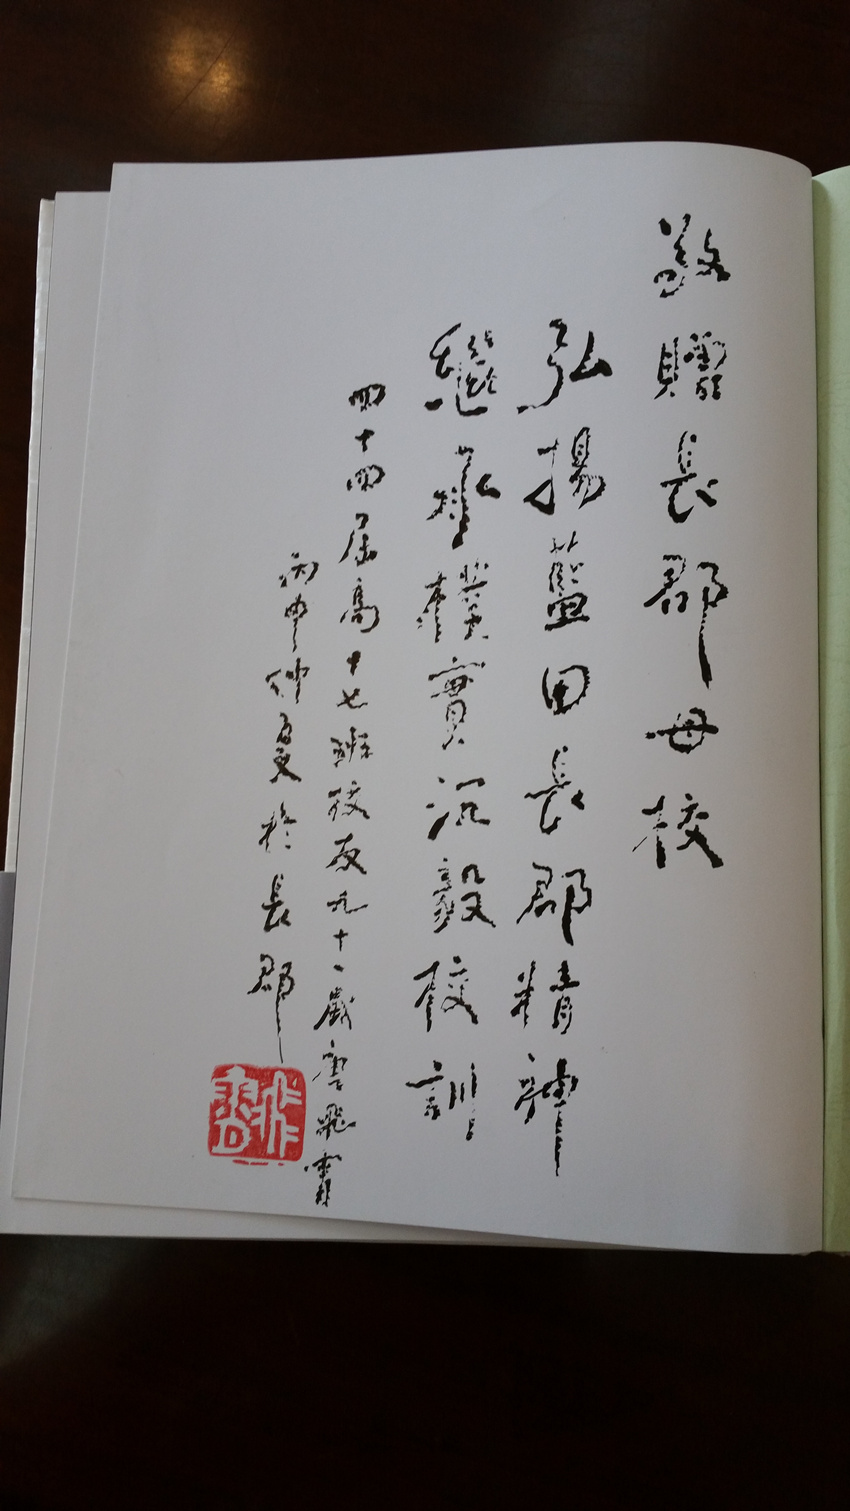 敬贈長郡母校
弘揚藍田長郡精神
繼承樸實沉毅校訓
四十四屆高十七班校友九十一歲唐飛霄
丙申仲夏於長郡